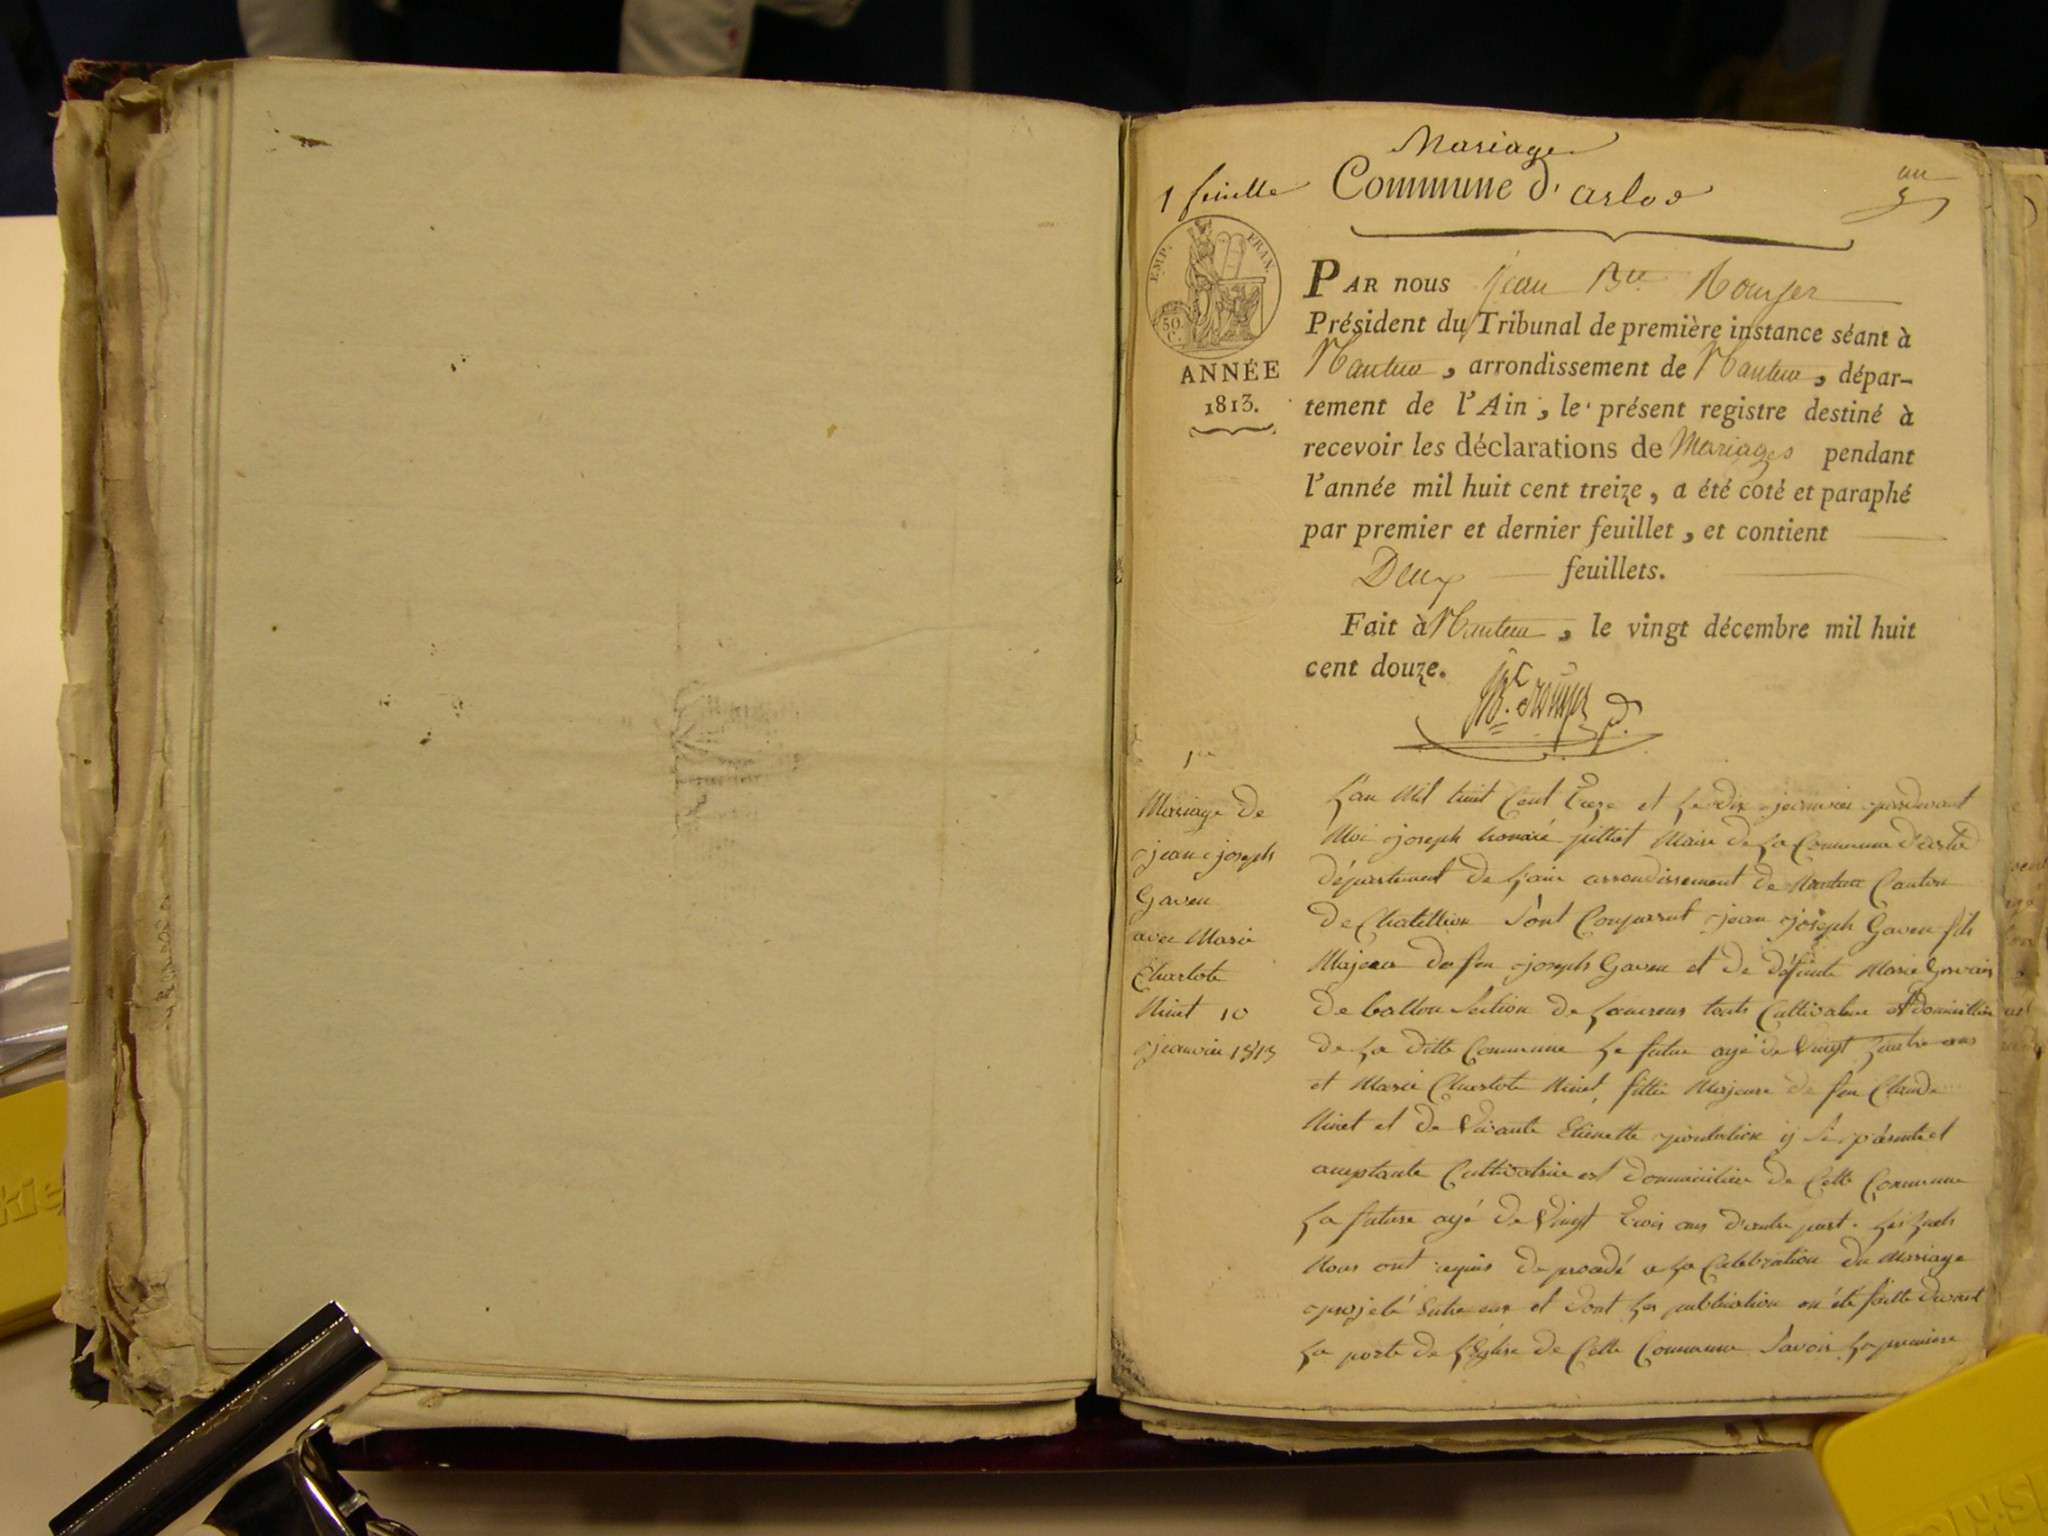 Mariage
1 feuille Commune d'arlod
un
EMP. FRAN.
50. C.
ANNÉE
1813.
PAR nous jean Bte Rouyer
Président du Tribunal de première instance séant à
Nantua, arrondissement de Nantua, dépar-
tement de l'Ain, le présent registre destiné à
recevoir les déclarations de Mariages pendant
l'année mil huit cent treize, a été coté et paraphé
par premier et dernier feuillet, et contient
Deux feuillets.
Fait à Nantua, le vingt décembre mil huit
cent douze.
1er
Mariage de
jean joseph
Gaven
avec Marie
Charlote
Ninet 10
jeanvier 1813
L'an Mil huit Cent Treze et Le dix jeanvier pardevant
Moi joseph honnoré Maire de La Commune d'arlod
département de L'ain arrondissement de Nantua Canton
De Chatillion Sont Comparent jean joseph Gaven fils
Majeur de feu joseph Gaven et de défunte Marie
De ballon Section de Lancrens touts Cultivateur et domicillier
de La ditte Commune Le futur agé de Vingt quatre ans
et Marie Charlote Ninet, fillie Majeure de feu Claude
Ninet et de Vivante Etienette y Se présente et
aceptante Cultivatrice et domiciliere de Cette Commune
La future agé de Vingt trois ans d'autre part. Lesquels
Nous ont requis de procedé a La Celebration du Mariage
projeté Entre eux et dont Les publication on été faitte devant
La porte de L'Eglise de Cette Commune Savoir La premiere